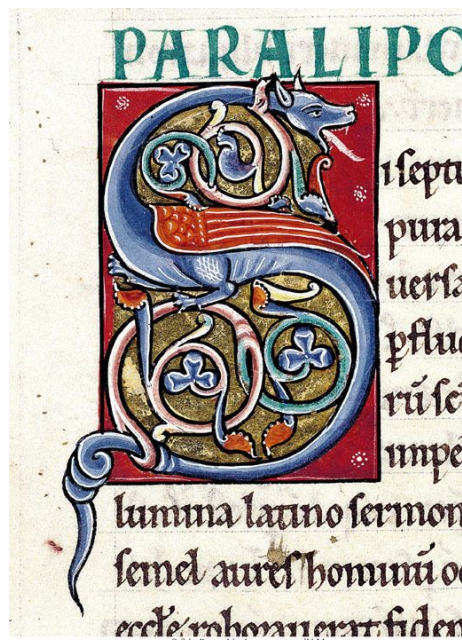 PARALIPO
S
i septu
pura
uersa
ꝑfluc
rū sc
impe
lumina latino sermon
semel aures hominū oc
eccłe roborauerat fiden